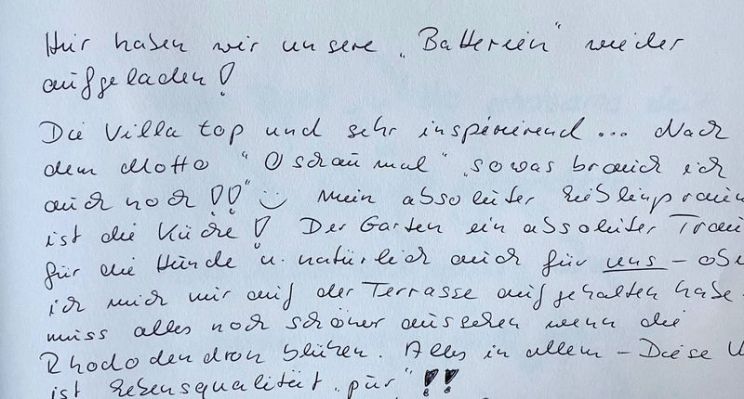 Hier haben wir unsere „Batterien" wieder
aufgeladen!
Die Villa top und sehr inspirierend... Nach
dem Motto "O schau mal" „sowas brauch ich
auch noch!!" ☺ Mein absoluter Lieblingsraum
ist die Küche! Der Garten ein absoluter Trau
für die Hunde u. natürlich auch für uns – obw
ich mich nur auf der Terrasse aufgehalten habe.
muss alles noch schöner aussehen wenn die
Rhododendron blühen. Alles in allem – Diese V
ist Lebensqualität „pur" !!